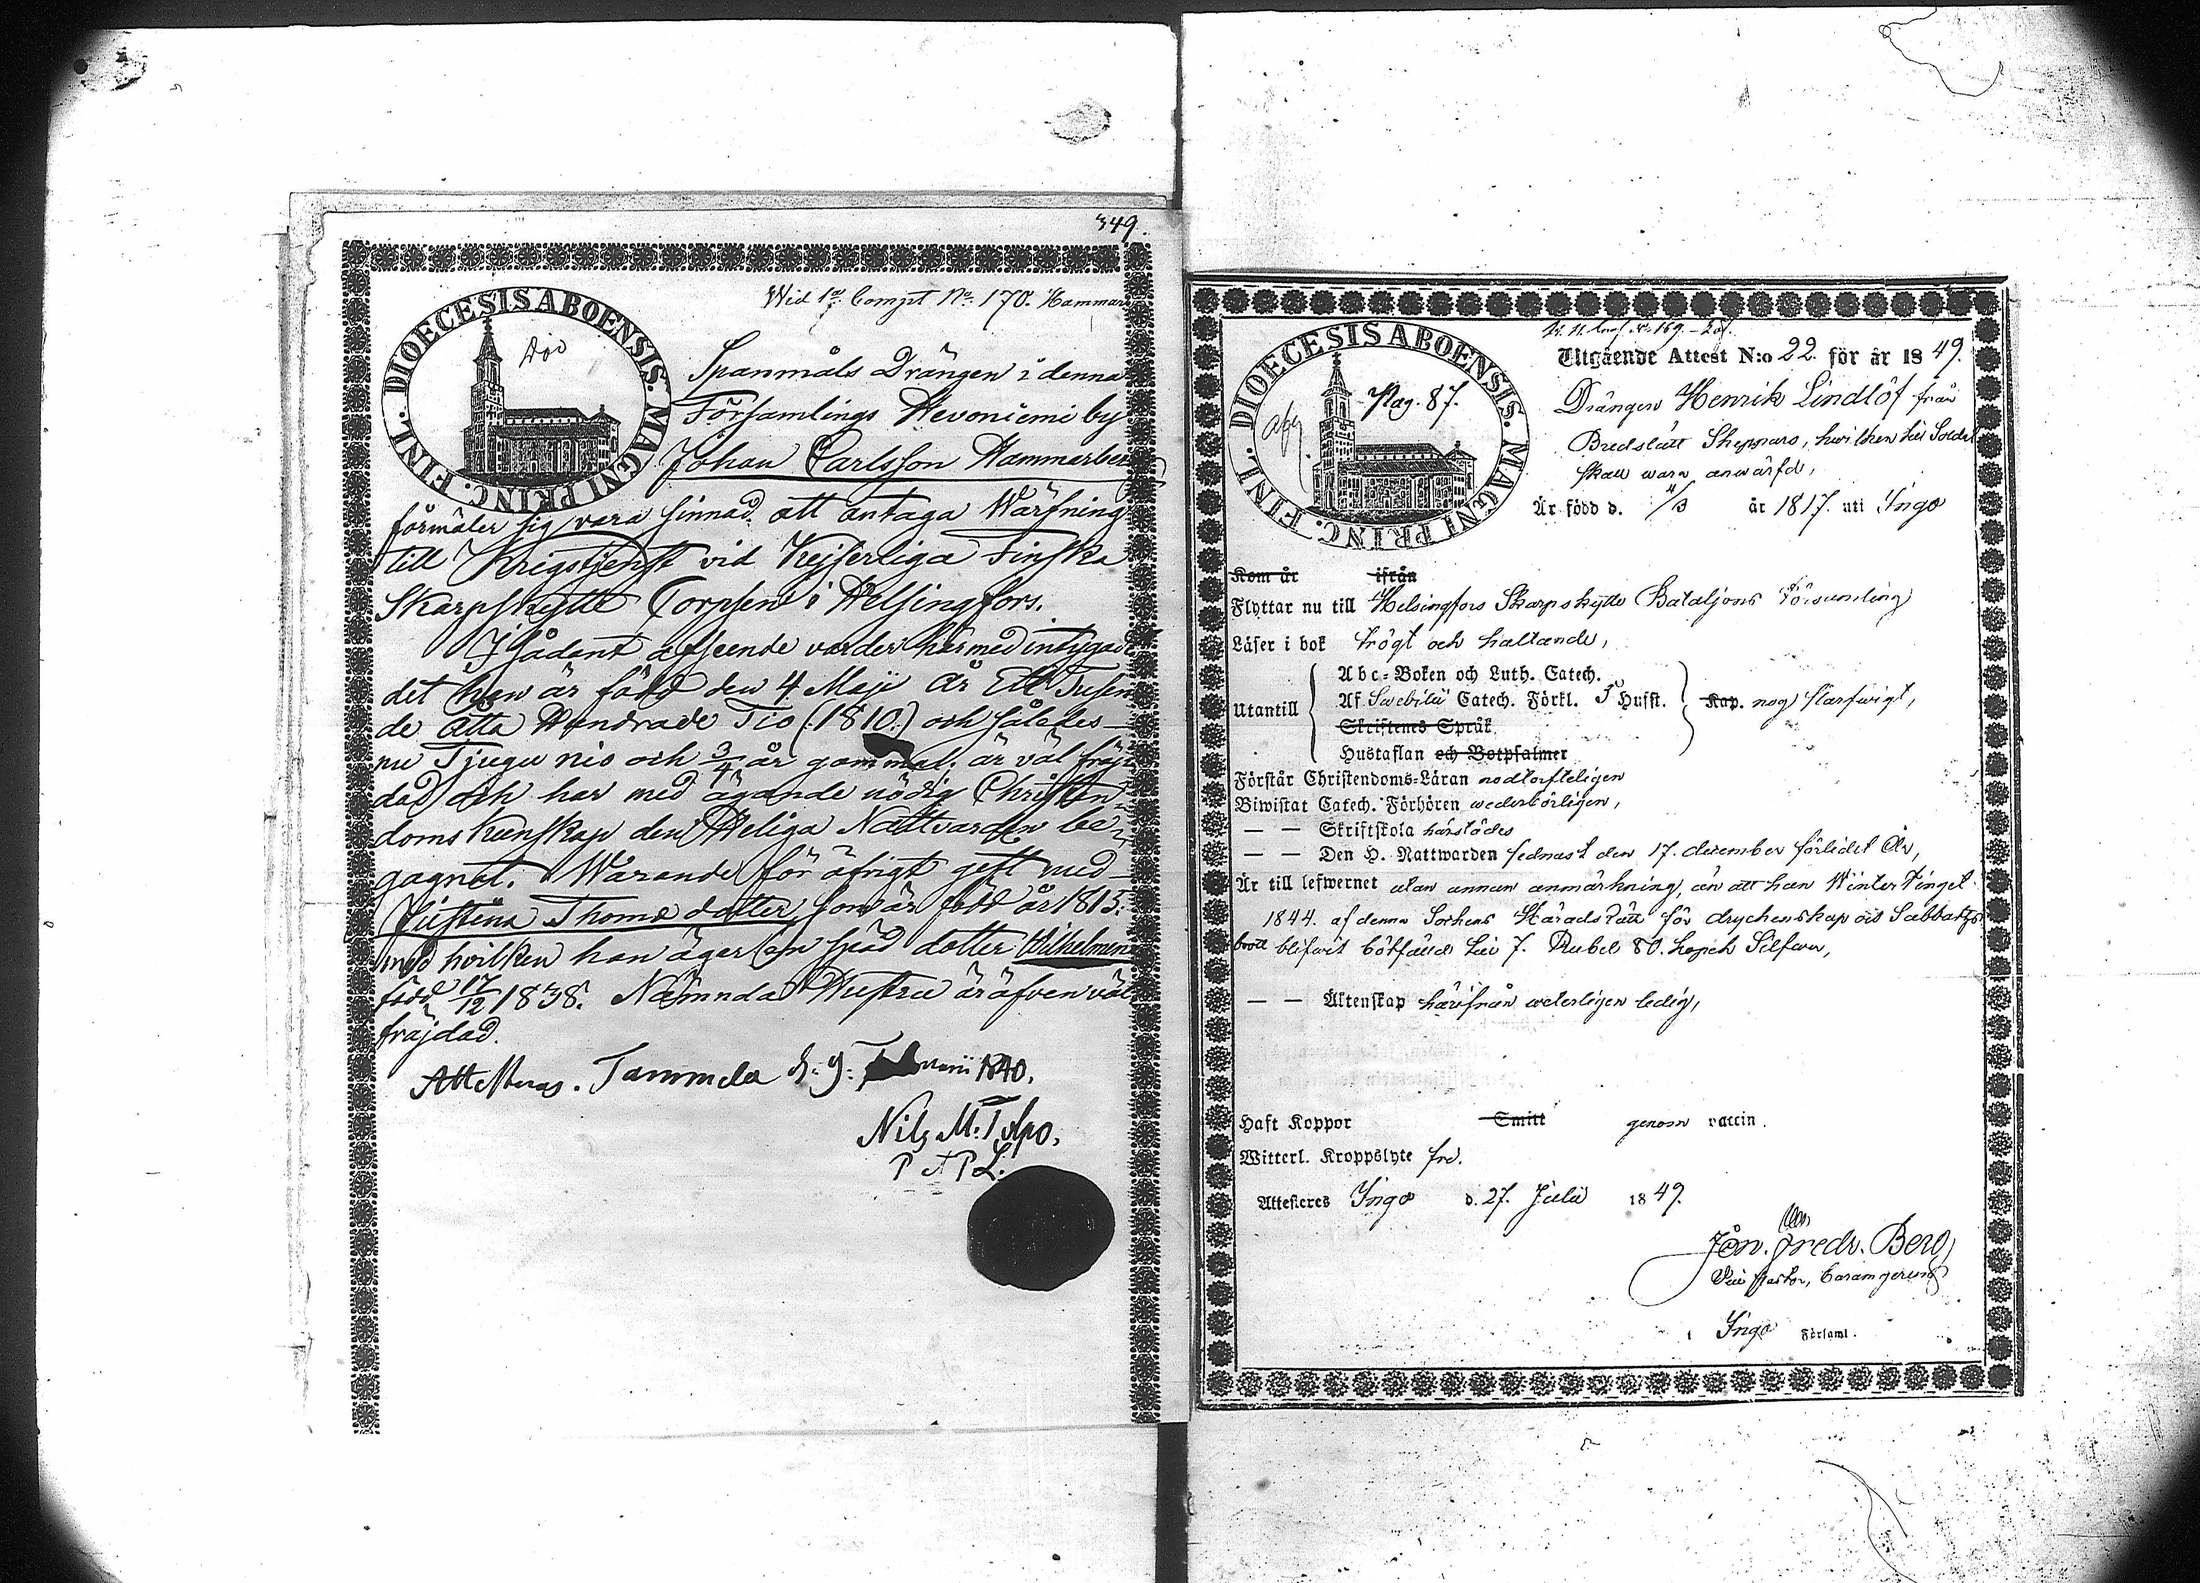 349.
Wid 1a Compt No. 170. Hammar
DIOECESIS ABOENSIS. MAGNI PRINC. FINL.
Död
Spanmåls Drängen i denna
Församlings Hevoniemi by
Johan Carlsson Hammarber
förmäler sig vara sinnad att antaga Wärfning
till Krigstjenst vid Kejserliga Finska
Skarpskytte Corpsen i Helsingfors.
I sådant afseende varder härmed intygad
det han är född den 4 Maji År Ett Tusen
de Åtta Hundrade Tio (1810.) och således
nu Tjugu nio och 3/4 år gammal, är väl fräj-
dad och har med ägande nödig Christen-
doms Kunskap den Heliga Nattvarden be-
gagnat. Warande för öfrigt gift med
Justina Thomæ dotter som är född år 1815.
med hvilken han äger en sjuk dotter Wilhelmina
född 17/12 1838. Nämnda Hustru är äfven väl
fräjdad.
Attesteras. Tammela d. 9. Februarii 1840.
Nils M. Tolpo,
P et P L.
No 169
Utgående Attest N:o 22. för år 1849.
DIOECESIS ABOENSIS. MAGNI PRINC. FINL.
Pag. 87.
afg
Drängen Henrik Lindlöf från
Bredslätt Skeppars, hwilken till Soldat
skall wara anwärfd,
Är född d. 4/3 år 1817. uti Ingo
Kom år ifrån
Flyttar nu till Helsingfors Skarpskytte Bataljons Församling
Läser i bok trögt och haltande,
Utantill
Abc-Boken och Luth. Catech.
Af Swebilii Catech. Förkl. 5 Hufst.
Skriftenes Språk
Hustaflan och Botpsalmer
Kap. nog slarfwigt,
Förstår Christendoms-Läran nödtorfteligen
Biwistat Catech. Förhören wederbörligen,
— — Skriftskola härstädes
— — Den H. Nattwarden sednast den 17. december förledet År,
Är till lefwernet utan annan anmärkning, än att han Winter Tinget
1844. af denna Sockens Härads Rätt för dryckenskap och Sabbaths
brott blifwit bötfälld till 7. Rubel 80. kopek Silfwer,
— — Äktenskap härifrån weterligen ledig,
Haft Koppor Smitt genom vaccin.
Witterl. Kroppslyte fri.
Attesteres Ingo d. 27. Julii 1849.
Jon. Fredr. Berg,
Vice Pastor,
i Ingo Församl.